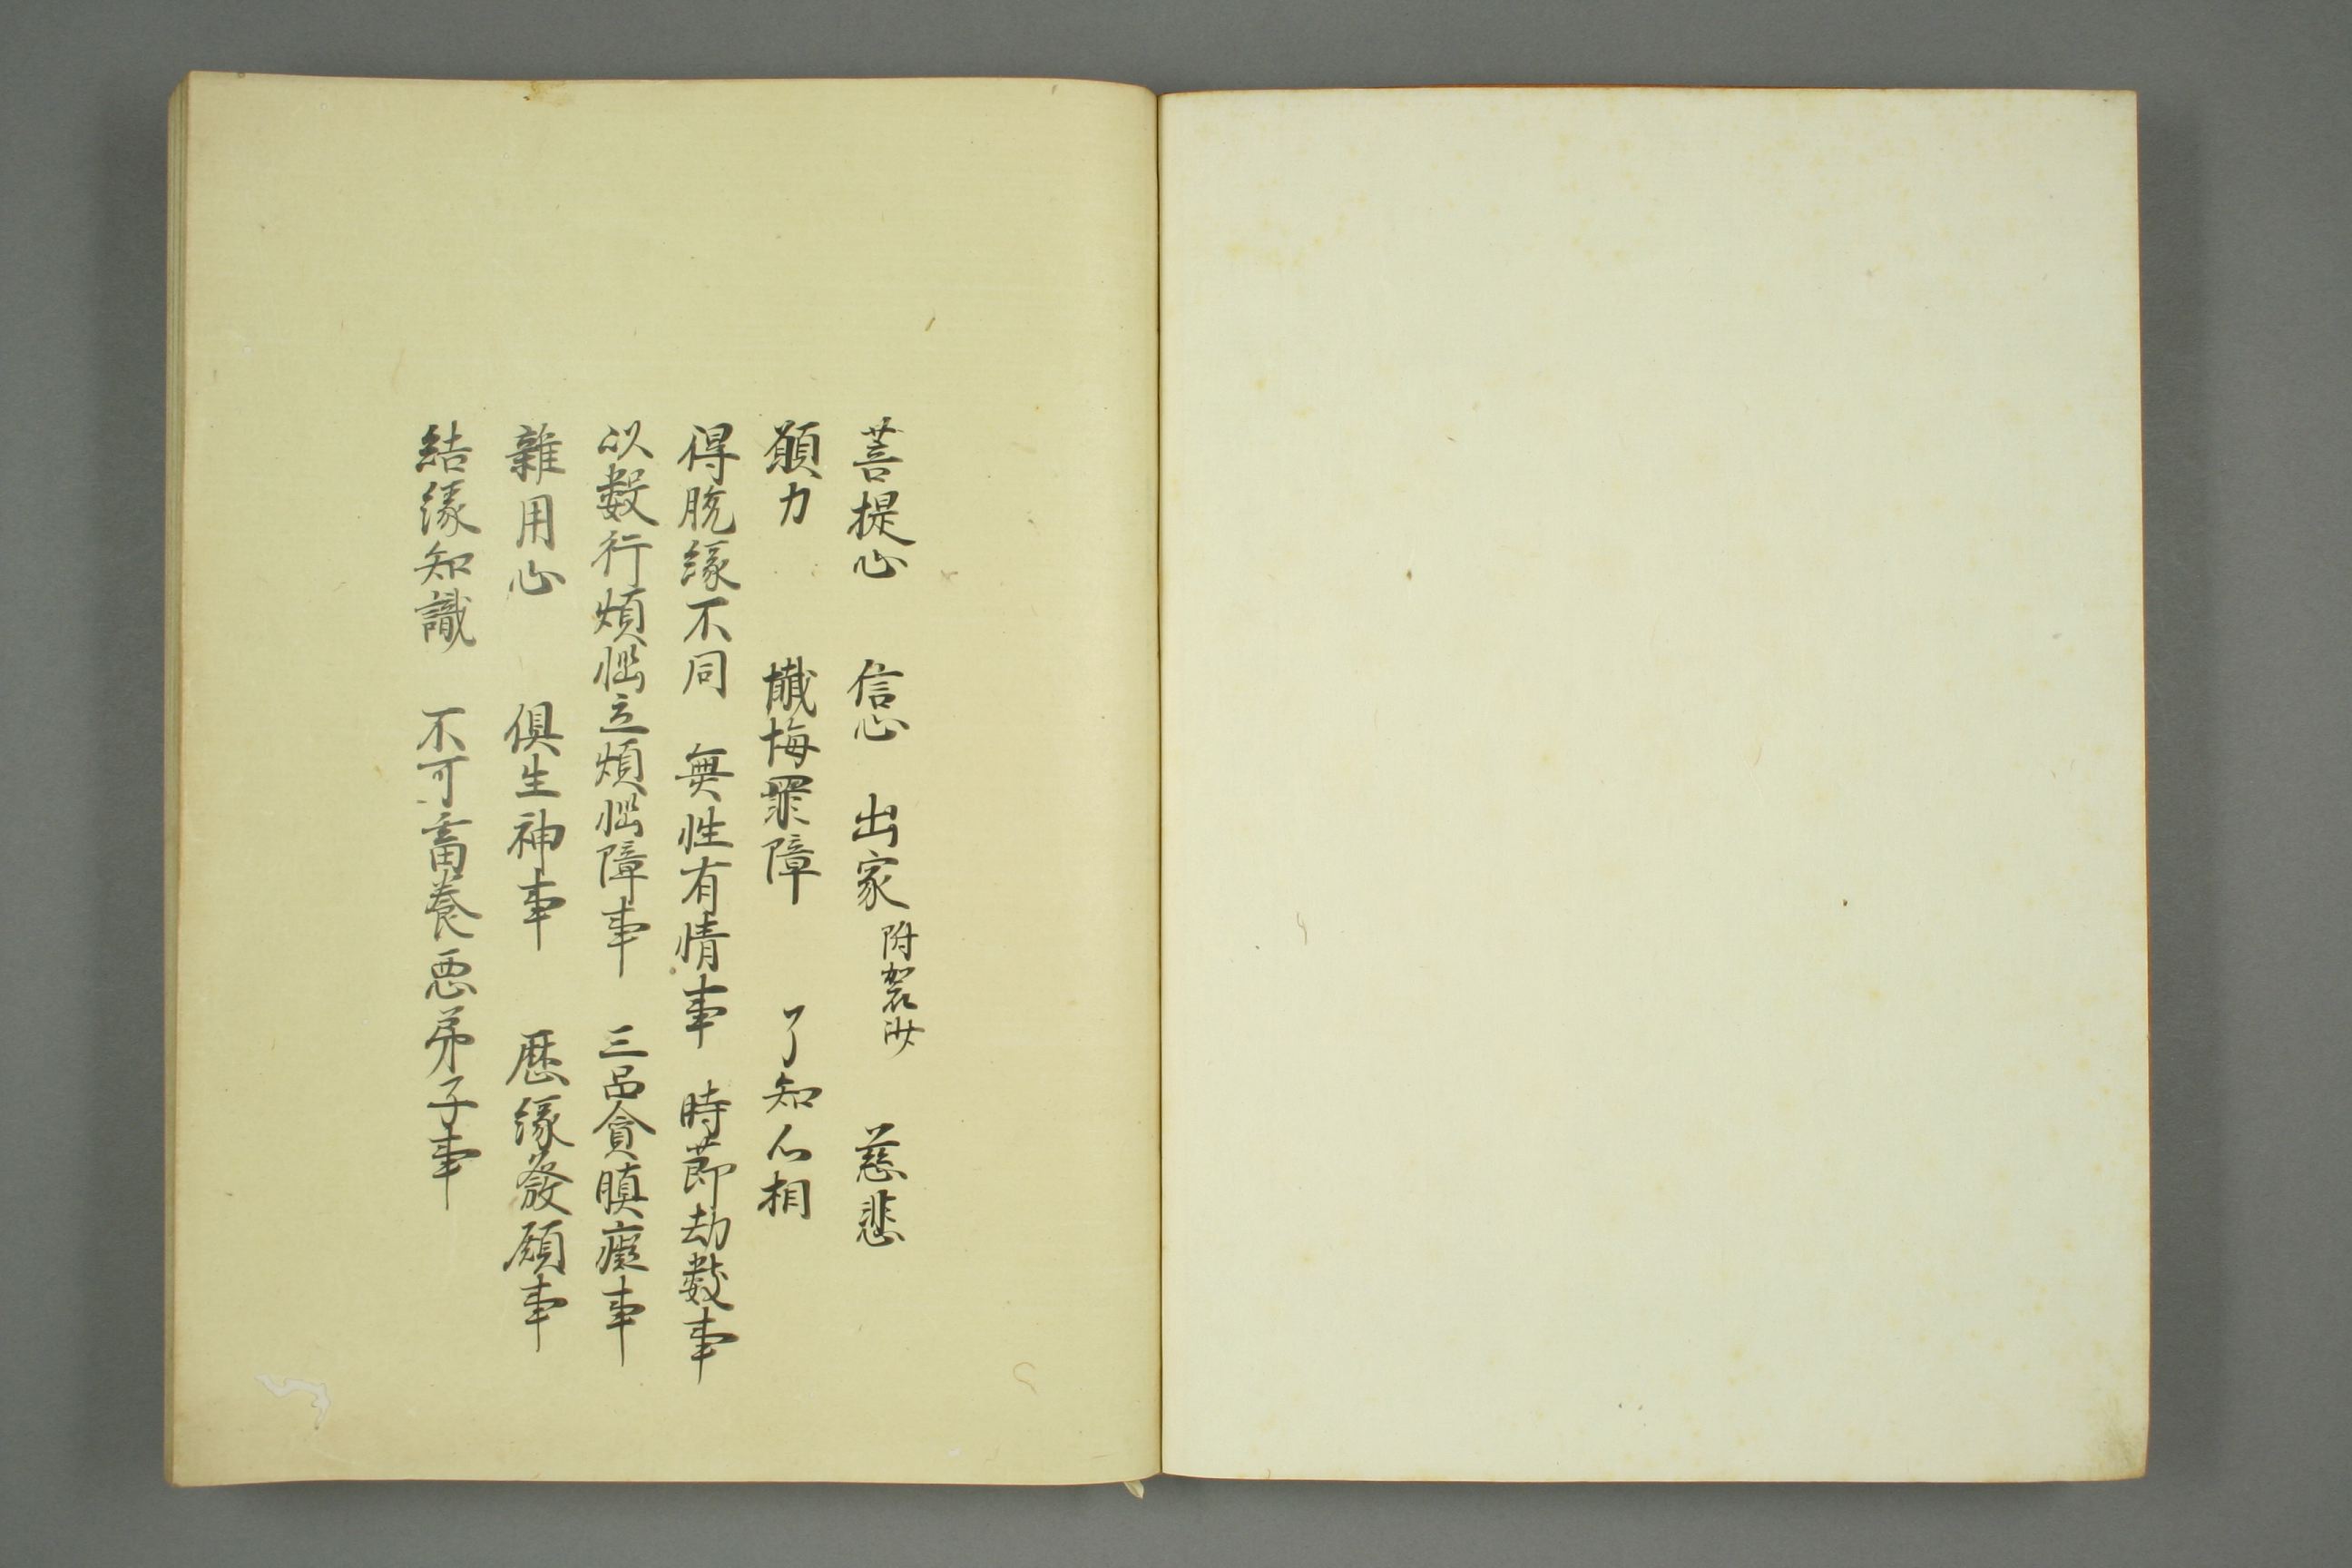 菩提心　信心　出家附袈裟　慈悲
願力　懺悔罪障　了知心相
得脱縁不同　無性有情事　時節劫數事
以數行煩惱立煩惱障事　三品貪瞋癡事
雜用心　倶生神事　歷縁發願事
結縁知識　不可畜養惡弟子事